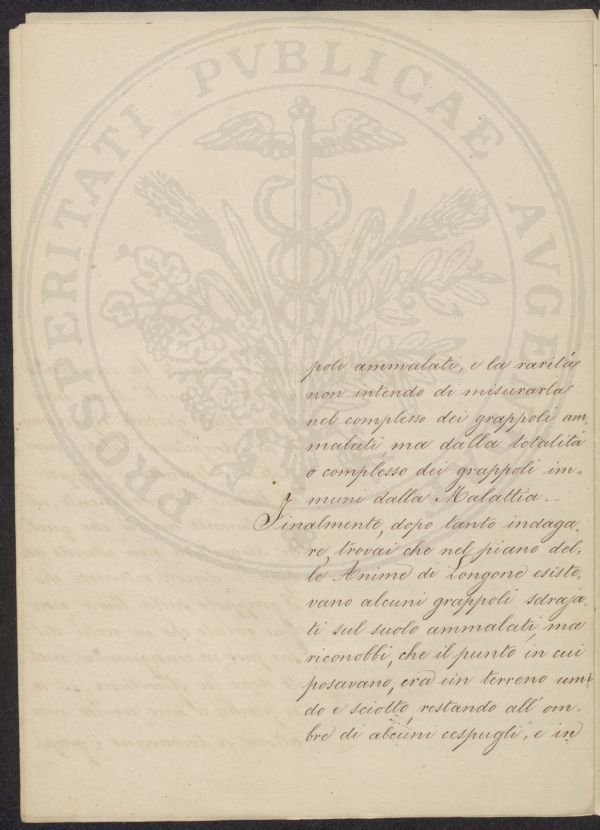 PROSPERITATI PVBLICAE AVGE
poli ammalati, e la rarità
non intendo di misurarla
nel complesso dei grappoli am=
malati, ma dalla totalità
o complesso dei grappoli im=
muni dalla Malattia._
Finalmente, dopo tanto indaga=
re, trovai che nel piano del=
le Anime di Longone esiste=
vano alcuni grappoli sdraja=
ti sul suolo ammalati, ma
riconobbi, che il punto in cui
posavano, era un terreno umi=
do e sciolto, restando all'om=
bre di alcuni cespugli, e in